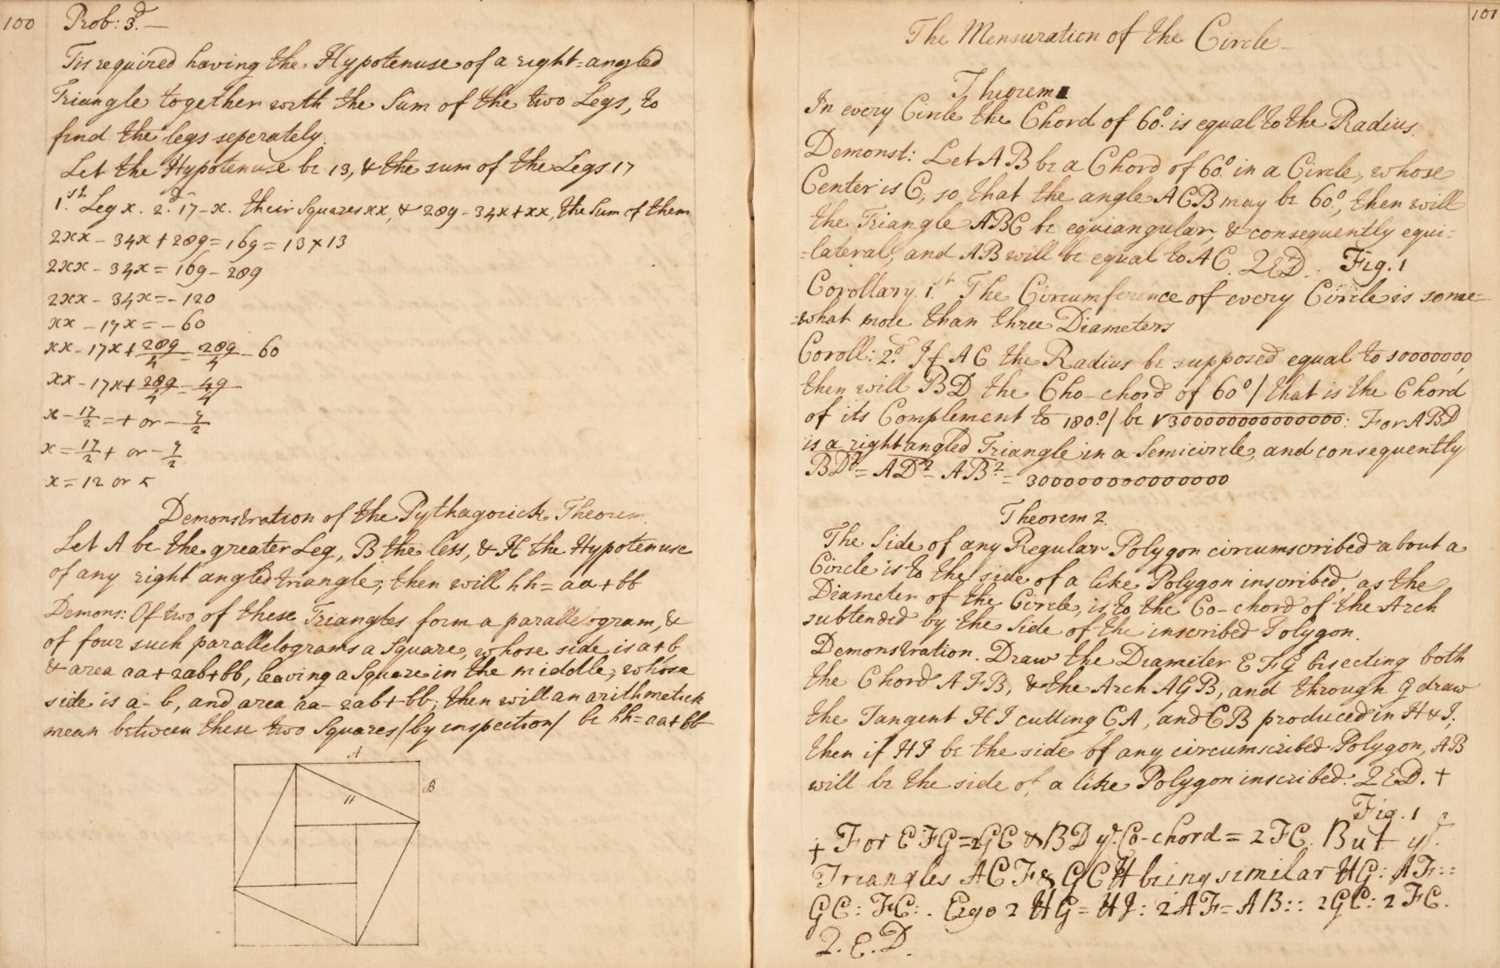 100
Prob: 3d. —
Tis required having the Hypotenuse of a right=angled
Triangle together with the Sum of the two Legs, to
find the legs seperately.
Let the Hypotenuse be 13, & the sum of the Legs 17
1.st Leg x. 2.d 17-x. their Squares xx, & 289-34x+xx, the Sum of them
2xx - 34x + 289 = 169 = 13 × 13
2xx - 34x = 169 - 289
2xx - 34x = - 120
xx - 17x = - 60
xx - 17x + 289/4 = 289/4 - 60
xx - 17x + 289/4 = 49/4
x - 17/2 = + or - 7/2
x = 17/2 + or - 7/2
x = 12 or 5
Demonstration of the Pythagorick Theorem.
Let A be the greater Leg, B the less, & H the Hypotenuse
of any right angled triangle; then will hh = aa + bb
Demons: Of two of these Triangles form a parallelogram, &
of four such parallelograms a Square, whose side is a+b
& area aa + 2ab + bb, leaving a Square in the middle, whose
side is a - b, and area aa - 2ab + bb; then will an arithmetick
mean between these two Squares /by inspection/ be hh = aa + bb
A
B
H
101
The Mensuration of the Circle
Theorem 1
In every Circle the Chord of 60° is equal to the Radius.
Demonst: Let AB be a Chord of 60° in a Circle, whose
Center is C, so, that the angle ACB may be 60°, then will
the Triangle ABC be equiangular, & consequently equi=
=lateral, and AB will be equal to AC. Q E D. Fig. 1
Corollary 1st The Circumference of every Circle is some=
=what more than three Diameters
Coroll: 2d If AC the Radius be supposed equal to 10000000,
then will BD the Cho-chord of 60° / that is the Chord
of its Complement to 180°/ be √300000000000000: For ABD
is a right angled Triangle in a Semicircle, and consequently
BD² = AD² - AB² = 300000000000000
Theorem 2
The Side of any Regular Polygon circumscribed about a
Circle is to the side of a like Polygon inscribed, as the
Diameter of the Circle, is to the Co-chord of the Arch
subtended by the Side of the inscribed Polygon.
Demonstration. Draw the Diameter EFG bisecting both
the Chord AFB, & the Arch AGB, and through G draw
the Tangent HI cutting CA, and CB produced in H & I;
then if HI be the side of any circumscribed Polygon, AB
will be the side of a like Polygon inscribed. Q E D. +
Fig. 1
+ For EFG = 2GC & BD ye Co-chord = 2FC. But ye
Triangles ACF & GCH being similar HG: AF::
GC: FC:. Ergo 2HG = HI: 2AF = AB:: 2GC: 2FC.
Q. E. D.